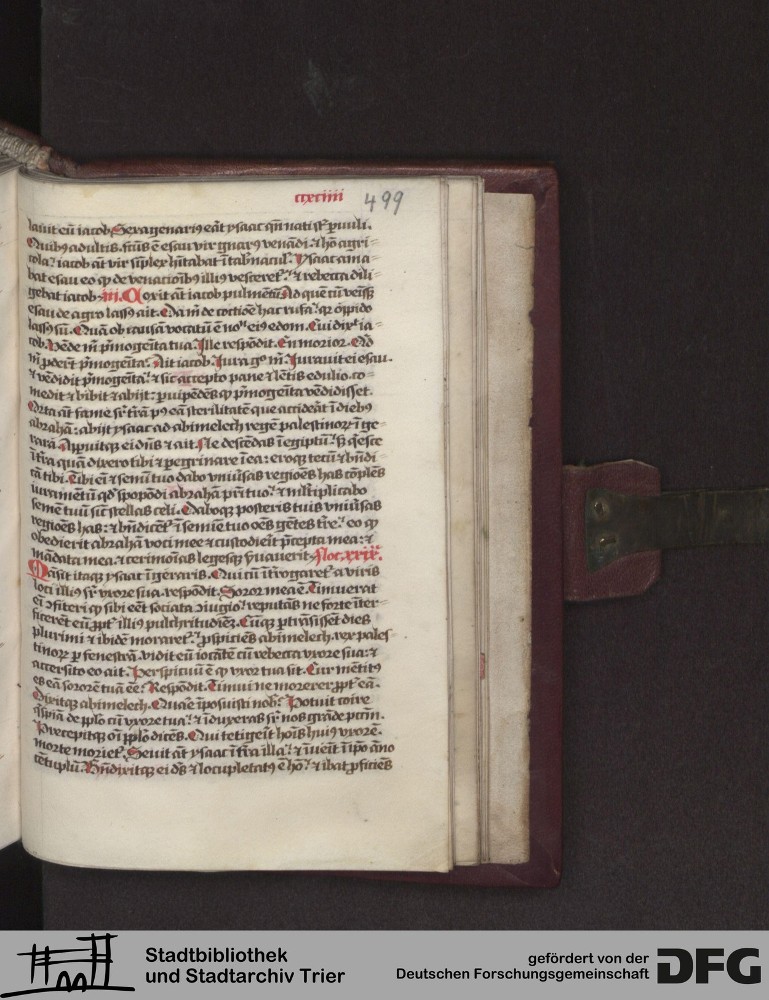 ccxciiii 499
lauit eū iacob. Sexagenari9 eāt ysaac qñ nati sť puuli.
Quib9 adultis. fctūs ē esau vir gnar9 venādi. ⁊ hō agri=
cola. iacob aūt vir simplex hītabat ī tab̄nacul. Ysaac ama=
bat esau eo qp de venationib9 illi9 vesceret. ⁊ rebecca dili=
gebat iacob. iii. Coxit aūt iacob pulmētū. Ad quē cū veniss̄
esau de agro lass9 ait. Da m̄ de coctiōe hac rufa. qr oppido
lass9 sū. Quā ob causā vocatū ē nomē ei9 edom. Cui dixit ia=
cob. Vēde m̄ pmogeita tua. Ille respōdit. En morior. Qd
m̄ pdert pmogeita. Ait iacob. Iura go m̄. Iurauit ei esau.
⁊ vēdidit pmogeita. ⁊ sic accepto pane ⁊ lētis edulio. co=
medit ⁊ bibit ⁊ abijt. puipēdēs qp pmogeita vēdidisset.
Orta aūt fame sr trā p9 eā sterilitatē que accideāt ī dieb9
abrahā. abijt ysaac ad abimelech regē palestinorz ī ge=
rara. Apparuitqz ei dn̄s ⁊ ait. Ne descēdas ī egiptū. sz qesce
ī tra quā dixero tibi ⁊ pegrinare ī ea. eroqz tecū ⁊ bn̄di=
cā tibi. Tibi eī ⁊ semī tuo dabo vniu̇sas regioēs has cōplēs
iuramētū qd spopōdi abrahā pri tuo. ⁊ m̄ltiplicabo
semē tuū sic stellas celi. Daboqz posteris tuis vniu̇sas
regioēs has. ⁊ bn̄dicēt ī semie tuo oēs gētes tre. eo qp
obedierit abrahā voci mee ⁊ custodierit pcepta mea. ⁊
mādata mea. ⁊ cerimoīas legesqz fuauerit. Hoc. xxix.
Māsit itaqz ysaac ī geraris. Qui cū ītrogaret a viris
loci illi9 sr vxore sua. respōdit. Soror mea ē. Timuerat
eī ofiteri qp sibi eēt sociata oiugio. reputās ne forte īter=
ficerēt eū ppt illi9 pulchritudiēz. Cūqz ptrāsissēt dies
plurimi ⁊ ibidē moraret. pspiciēs abimelech. rex pales=
tinorz p fenestrā. vidit eū iocātē cū rebecca vxore sua. ⁊
accersito eo ait. Perspicuū ē qp vxor tua sit. Cur mētit9
es eā sororē tuā eē. Respōdit. Timui ne morerer ppt eā.
Dixitqz abimelech. Quare īposuisti nob. Potuit coire
qspiā de pplo cū vxore tua. ⁊ īduxeras sr nos grāde pctm̄.
Precepitqz oi pplo dicēs. Qui tetigerit hois hui9 vxorē.
morte moriet. Seuit aūt ysaac ī tra illa. ⁊ īuenit ī ipo āno
cētuplū. Bn̄dixitqz ei dn̄s ⁊ locupletat9 ē hō. ⁊ ibat pficiēs
Stadtbibliothek
und Stadtarchiv Trier
gefördert von der
Deutschen Forschungsgemeinschaft DFG